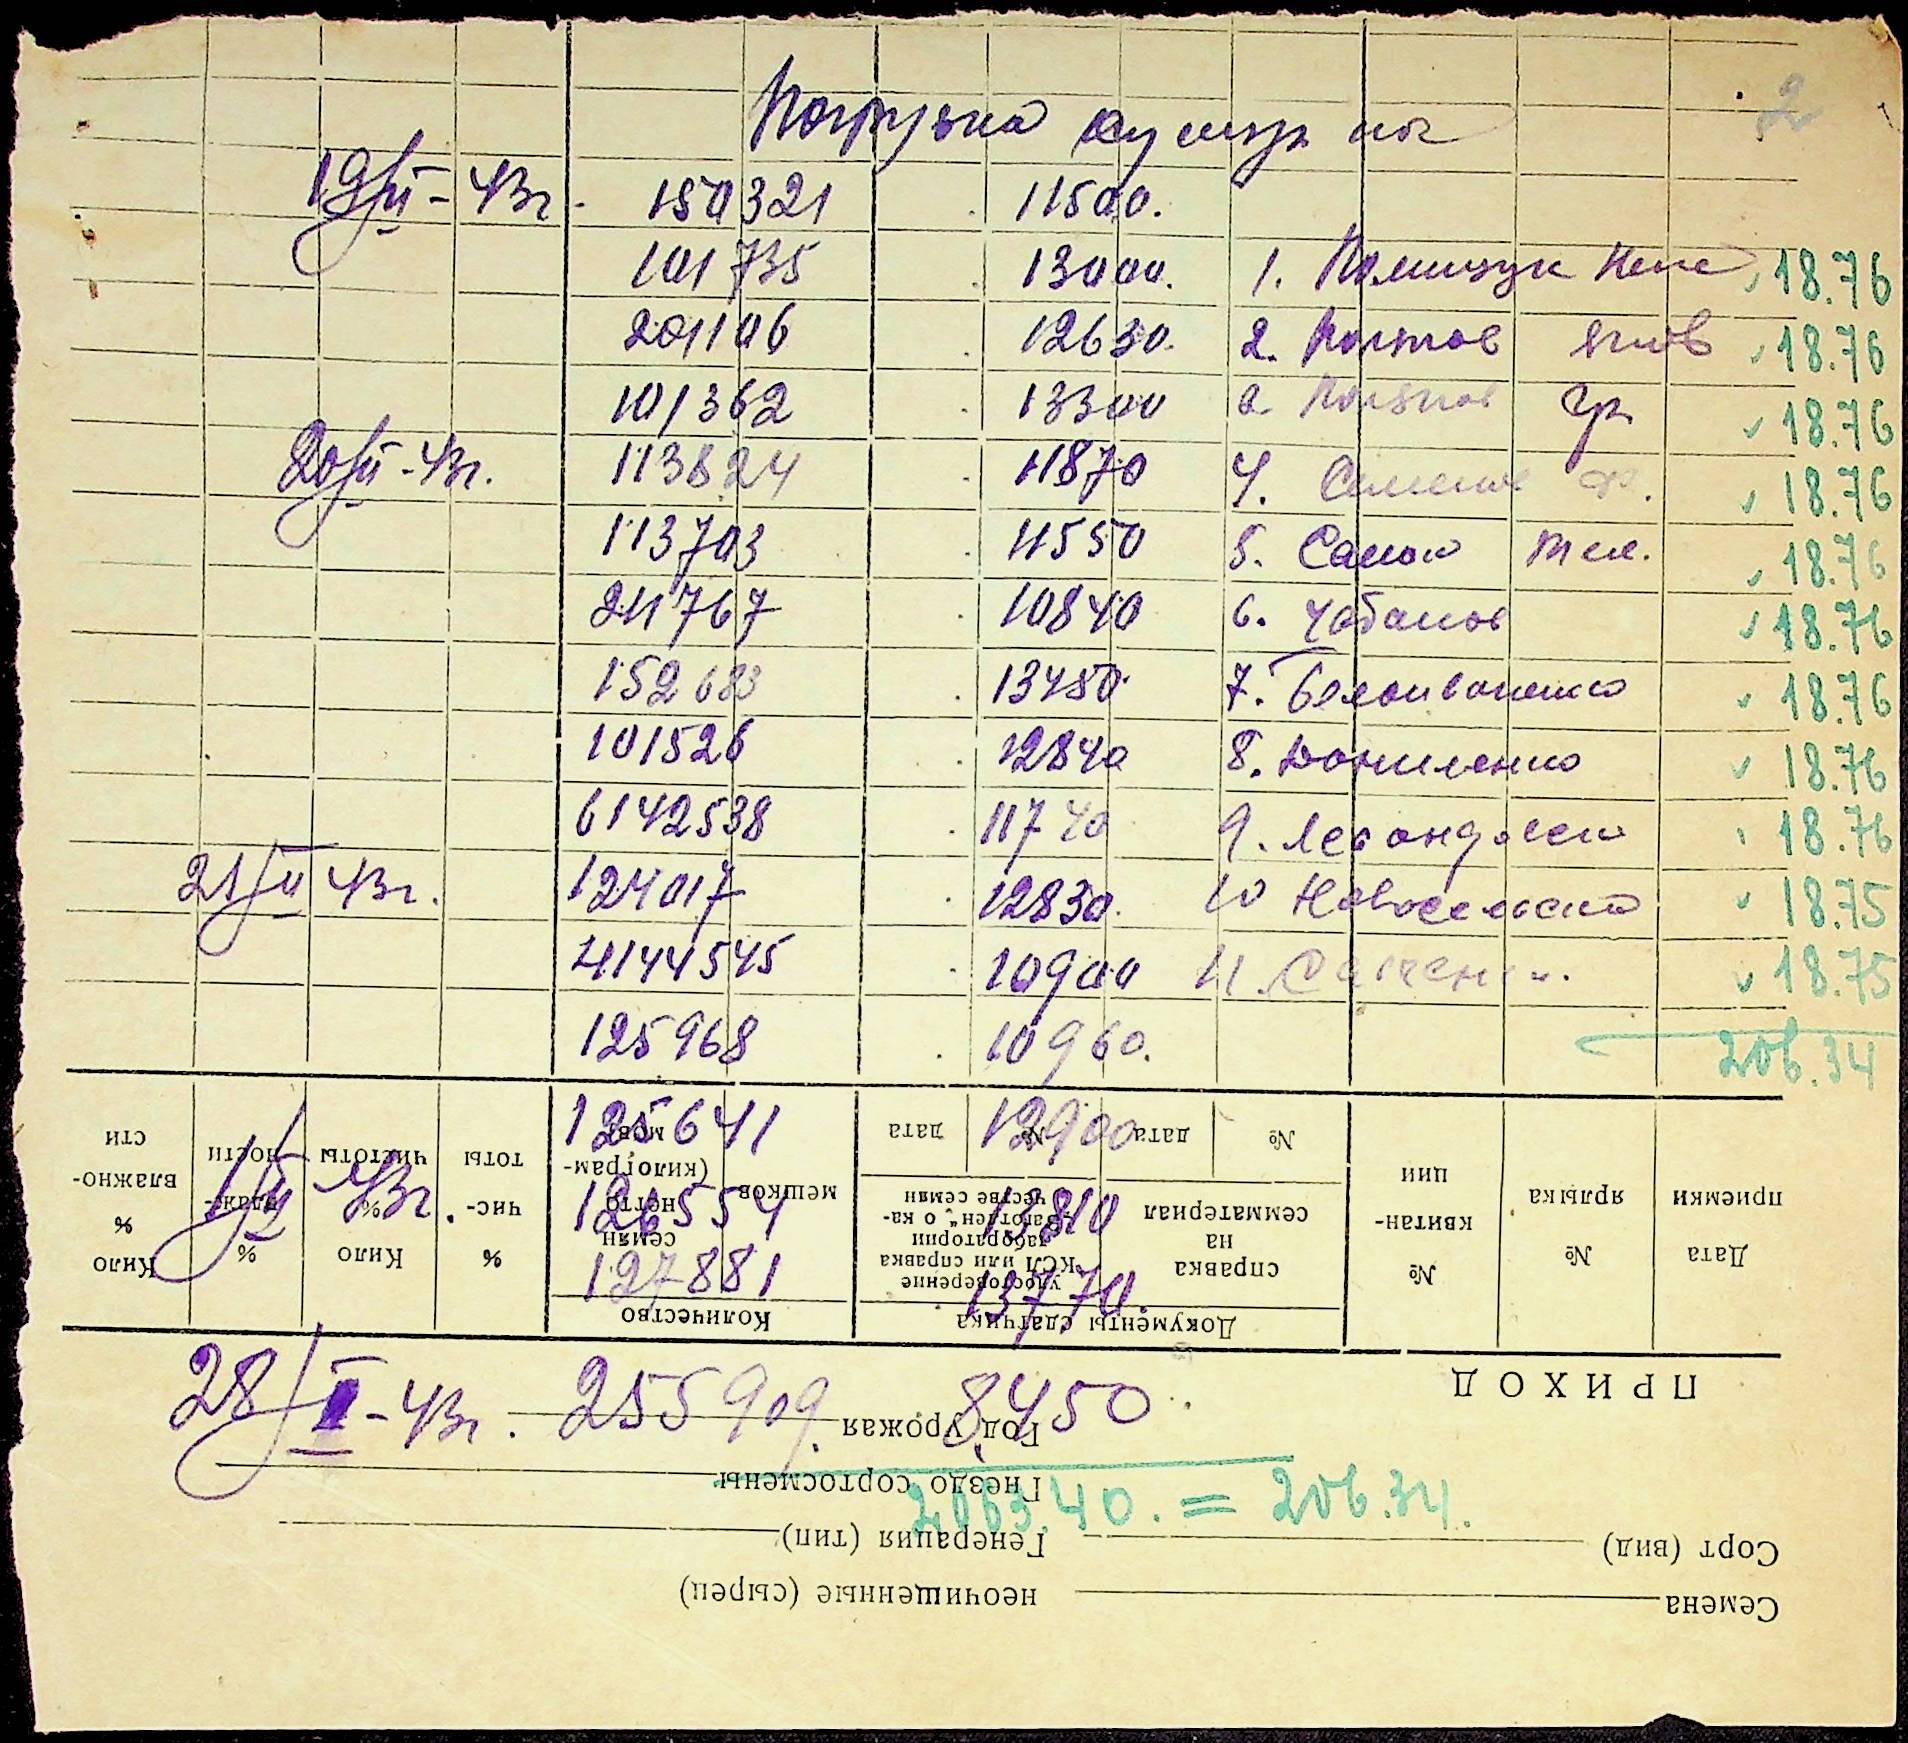 2
Погрузка
19/II - 43г. 150321 11500.
101735 13000. 1. Полищук 18.76
201106 12630. 2. 18.76
101362 13300 3. Гр. 18.76
20/II - 43г. 113824 11870 4. 18.76
113703 11550 5. 18.76
211767 10840 6. Чабанов 18.76
152683 13450 7. 18.76
101526 12840 8. Даниленко 18.76
6142538 11740 9. 18.76
21/II 43г. 124017 12830. 10 Новосельский 18.75
4144545 10900 11. 18.75
125968 10960. 206.34
125641 12900
43г. 126554 13810
127881 13770.
28/ - 43г. 255909. 8450.
2063.40. = 206.34.
Семена неочищенные (сырец)
Сорт (вид) Генерация (тип)
Гнездо сортосмены
Год урожая
ПРИХОД
Дата приемки
№ ярлыка
№ квитанции
Документы сдатчика
справка на семматериал
№ дата
удостоверение КСЛ или справка лаборатории „Заготлен“ о качестве семян
№ дата
Количество
мешков
семян нетто (килограммов)
% чистоты
Кило % чистоты
% влажности
Кило % влажности